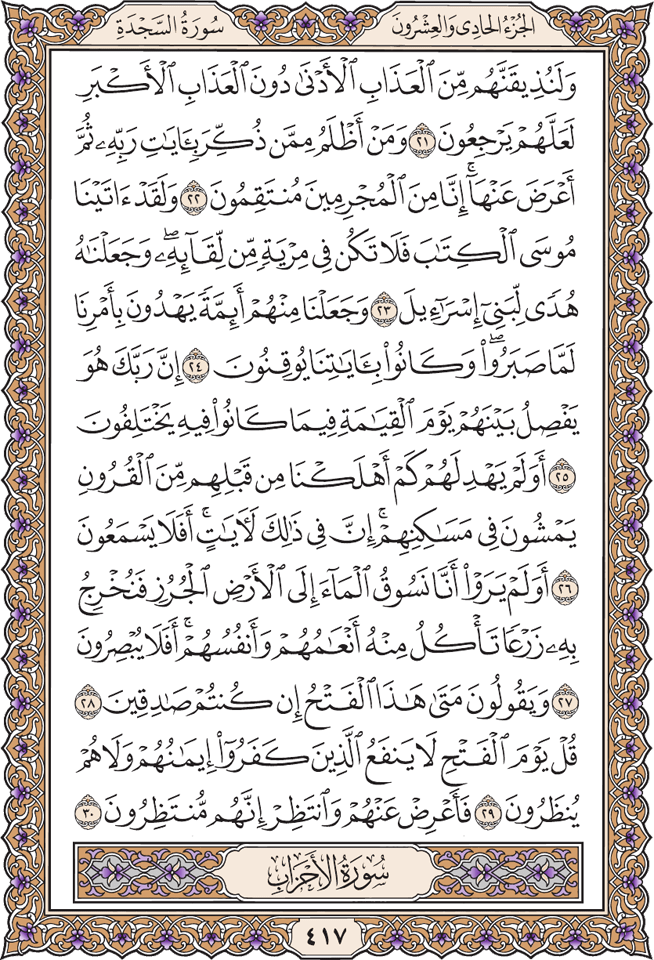 الجُزْءُ الحَادِى وَالعِشْرُونَ
سُورَةُ السَّجْدَةِ
وَلَنُذِيقَنَّهُم مِّنَ ٱلْعَذَابِ ٱلْأَدْنَىٰ دُونَ ٱلْعَذَابِ ٱلْأَكْبَرِ
لَعَلَّهُمْ يَرْجِعُونَ ٢١ وَمَنْ أَظْلَمُ مِمَّن ذُكِّرَ بِـَٔايَٰتِ رَبِّهِۦ ثُمَّ
أَعْرَضَ عَنْهَآۚ إِنَّا مِنَ ٱلْمُجْرِمِينَ مُنتَقِمُونَ ٢٢ وَلَقَدْ ءَاتَيْنَا
مُوسَى ٱلْكِتَٰبَ فَلَا تَكُن فِى مِرْيَةٍ مِّن لِّقَآئِهِۦۖ وَجَعَلْنَٰهُ
هُدًى لِّبَنِىٓ إِسْرَٰٓءِيلَ ٢٣ وَجَعَلْنَا مِنْهُمْ أَئِمَّةً يَهْدُونَ بِأَمْرِنَا
لَمَّا صَبَرُوا۟ۖ وَكَانُوا۟ بِـَٔايَٰتِنَا يُوقِنُونَ ٢٤ إِنَّ رَبَّكَ هُوَ
يَفْصِلُ بَيْنَهُمْ يَوْمَ ٱلْقِيَٰمَةِ فِيمَا كَانُوا۟ فِيهِ يَخْتَلِفُونَ
٢٥ أَوَلَمْ يَهْدِ لَهُمْ كَمْ أَهْلَكْنَا مِن قَبْلِهِم مِّنَ ٱلْقُرُونِ
يَمْشُونَ فِى مَسَٰكِنِهِمْۚ إِنَّ فِى ذَٰلِكَ لَءَايَٰتٍۚ أَفَلَا يَسْمَعُونَ
٢٦ أَوَلَمْ يَرَوْا۟ أَنَّا نَسُوقُ ٱلْمَآءَ إِلَى ٱلْأَرْضِ ٱلْجُرُزِ فَنُخْرِجُ
بِهِۦ زَرْعًا تَأْكُلُ مِنْهُ أَنْعَٰمُهُمْ وَأَنفُسُهُمْۚ أَفَلَا يُبْصِرُونَ
٢٧ وَيَقُولُونَ مَتَىٰ هَٰذَا ٱلْفَتْحُ إِن كُنتُمْ صَٰدِقِينَ ٢٨
قُلْ يَوْمَ ٱلْفَتْحِ لَا يَنفَعُ ٱلَّذِينَ كَفَرُوٓا۟ إِيمَٰنُهُمْ وَلَا هُمْ
يُنظَرُونَ ٢٩ فَأَعْرِضْ عَنْهُمْ وَٱنتَظِرْ إِنَّهُم مُّنتَظِرُونَ ٣٠
سُورَةُ الأَحْزَابِ
٤١٧